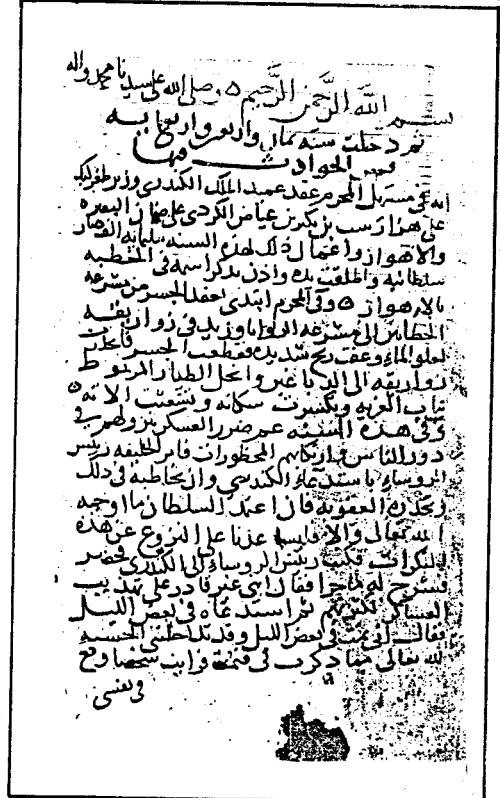 بسم الله الرحمن الرحيم ٥ وصلى الله على سيدنا محمد واله
ثم دخلت سنة ثمان واربعين واربعمايه
فمن الحوادث فيها
انه في مستهل المحرم عقد عميد الملك الكندري وزير طغرلبك
على هزارسب بن بنكير بن عياض الكردي على ضمان البصره
والاهواز واعمال ذلك لهذه السنه بثلثمايه الف دينار
سلطانيه واطلقت يده واذن بذكر اسمه في الخطبه
بالاهواز ٥ وفي المحرم ابتدى بعقد الجسر من مشرعة
الحطابين الى مشرعه الروايا وزيد في زواريقه
لعلو الماء وعصفت ريح شديده فقطعت الجسر فانحلت
زواريقه الى الدباغين وانحل الطيار المربوط
بباب الغربه وتكسرت سكانه وتشعثت الاته ٥
وفي هذه السنه عم ضرر العسكر بنزولهم في
دور الناس وارتكابهم المحظورات فامر الخليفه رئيس
الروساء باستدعاء الكندري وان يخاطبه في ذلك
ويحذره العقوبه فان اعتمد السلطان ما اوجبه
الله تعالى والا فليساعدنا على النزوح عن هذه
المنكرات فكتب رئيس الروساء الى الكندري فحضر
فشرح له ما جرا فقال اني غير قادر على تهذيب
العساكر لكثرتهم ثم استدعاه في بعض الليل
فقال اني نمت في بعض الليل وقد تداخلني الخشية
لله تعالى مما ذكرت في فنمت فرايت شخصا وقع
في نفسي